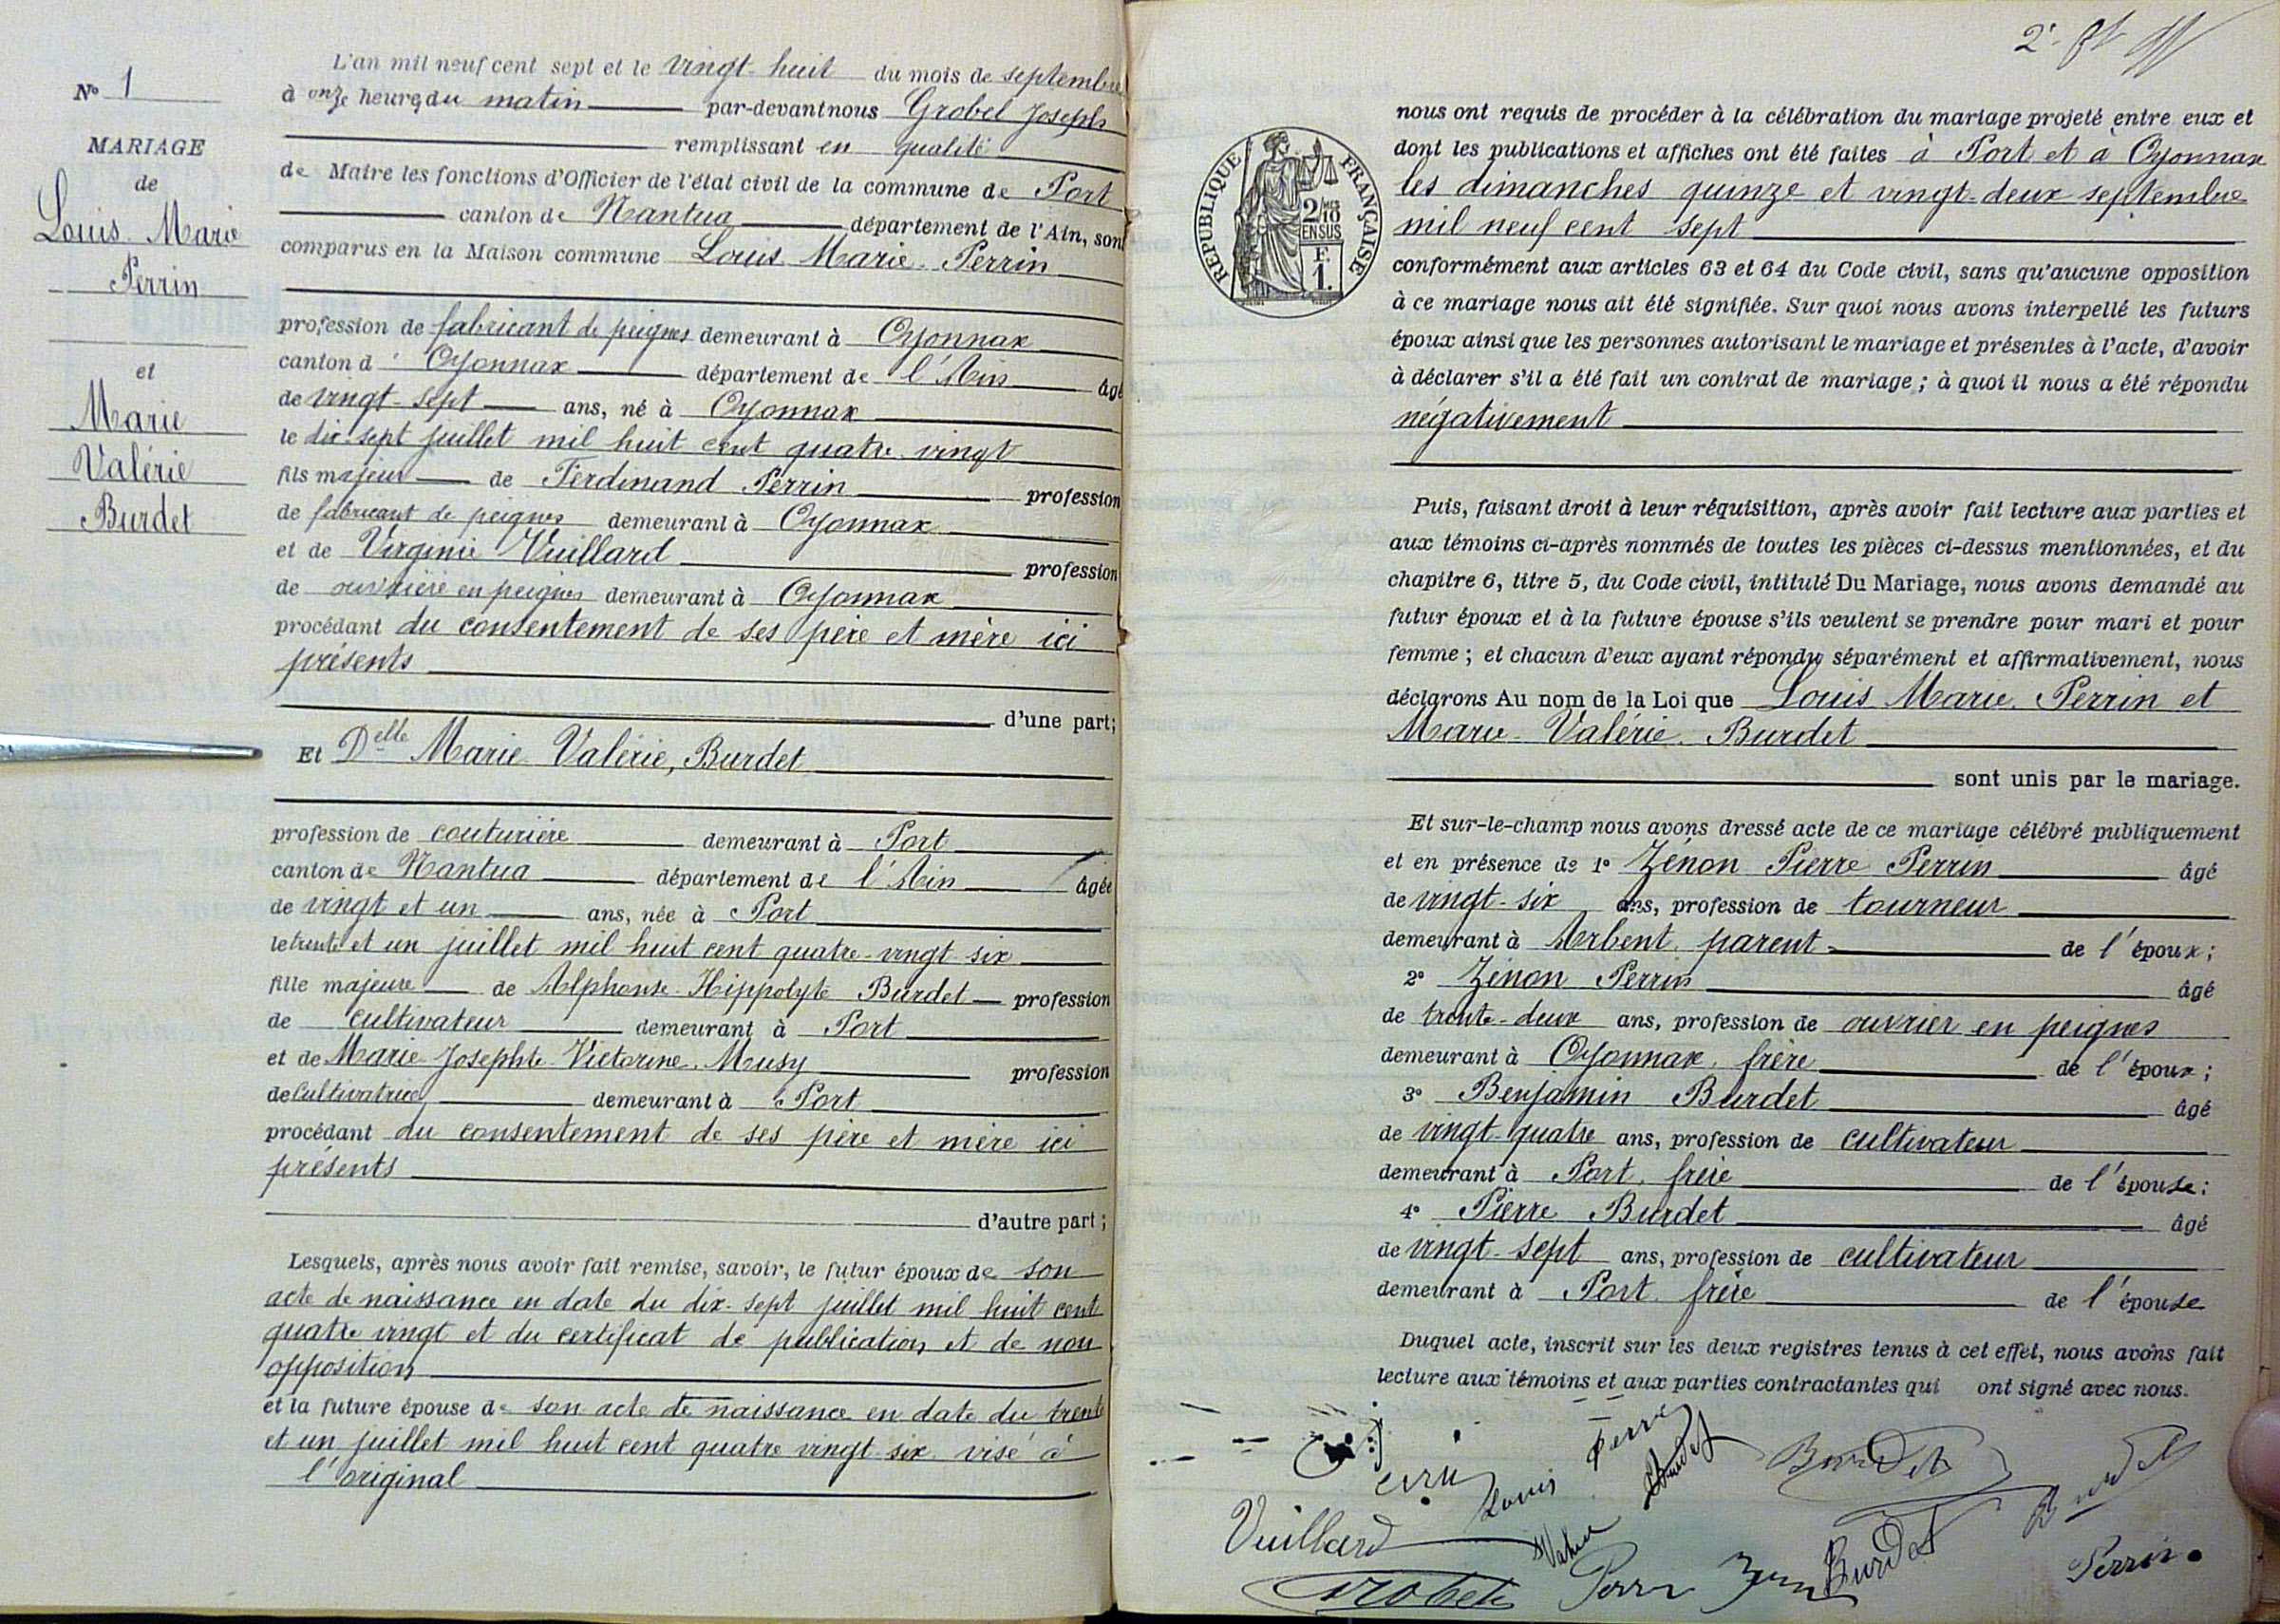 N° 1
MARIAGE
de
Louis-Marie
Perrin
et
Marie
Valérie
Burdet
L'an mil neuf cent sept et le vingt-huit du mois de septembre
à onze heures du matin par-devant nous Grobel Joseph
remplissant en qualité
de Maire les fonctions d'Officier de l'état civil de la commune de Port
canton de Nantua département de l'Ain, sont
comparus en la Maison commune Louis Marie Perrin
profession de fabricant de peignes demeurant à Oyonnax
canton d' Oyonnax département de l'Ain âgé
de vingt-sept ans, né à Oyonnax
le dix-sept juillet mil huit cent quatre-vingt
fils majeur de Ferdinand Perrin profession
de fabricant de peignes demeurant à Oyonnax
et de Virginie Vuillard profession
de ouvrière en peignes demeurant à Oyonnax
procédant du consentement de ses père et mère ici
présents
d'une part;
Et Delle Marie Valérie, Burdet
profession de couturière demeurant à Port
canton de Nantua département de l'Ain âgée
de vingt et un ans, née à Port
le trente et un juillet mil huit cent quatre-vingt-six
fille majeure de Alphonse-Hippolyte Burdet profession
de cultivateur demeurant à Port
et de Marie Josephte Victorine Musy profession
de Cultivatrice demeurant à Port
procédant du consentement de ses père et mère ici
présents
d'autre part;
Lesquels, après nous avoir fait remise, savoir, le futur époux de son
acte de naissance en date du dix-sept juillet mil huit cent
quatre vingt et du certificat de publication et de non
opposition
et la future épouse de son acte de naissance en date du trente
et un juillet mil huit cent quatre vingt six visé à
l'original
2e
RÉPUBLIQUE FRANÇAISE
2/10 EN SUS
F.
1.
nous ont requis de procéder à la célébration du mariage projeté entre eux et
dont les publications et affiches ont été faites à Port et à Oyonnax
les dimanches quinze et vingt-deux septembre
mil neuf cent sept
conformément aux articles 63 et 64 du Code civil, sans qu'aucune opposition
à ce mariage nous ait été signifiée. Sur quoi nous avons interpellé les futurs
époux ainsi que les personnes autorisant le mariage et présentes à l'acte, d'avoir
à déclarer s'il a été fait un contrat de mariage; à quoi il nous a été répondu
négativement
Puis, faisant droit à leur réquisition, après avoir fait lecture aux parties et
aux témoins ci-après nommés de toutes les pièces ci-dessus mentionnées, et du
chapitre 6, titre 5, du Code civil, intitulé Du Mariage, nous avons demandé au
futur époux et à la future épouse s'ils veulent se prendre pour mari et pour
femme; et chacun d'eux ayant répondu séparément et affirmativement, nous
déclarons Au nom de la Loi que Louis Marie Perrin et
Marie-Valérie Burdet
sont unis par le mariage.
Et sur-le-champ nous avons dressé acte de ce mariage célébré publiquement
et en présence de 1° Zénon Pierre Perrin âgé
de vingt-six ans, profession de tourneur
demeurant à Arbent, parent de l'époux;
2° Zénon Perrin âgé
de trente-deux ans, profession de ouvrier en peignes
demeurant à Oyonnax, frère de l'époux;
3° Benjamin Burdet âgé
de vingt-quatre ans, profession de cultivateur
demeurant à Port, frère de l'épouse;
4° Pierre Burdet âgé
de vingt-sept ans, profession de cultivateur
demeurant à Port, frère de l'épouse
Duquel acte, inscrit sur les deux registres tenus à cet effet, nous avons fait
lecture aux témoins et aux parties contractantes qui ont signé avec nous.
Louis Perrin
Burdet
Burdet
Vuillard
Valérie Burdet
Burdet
Perrin
Grobel